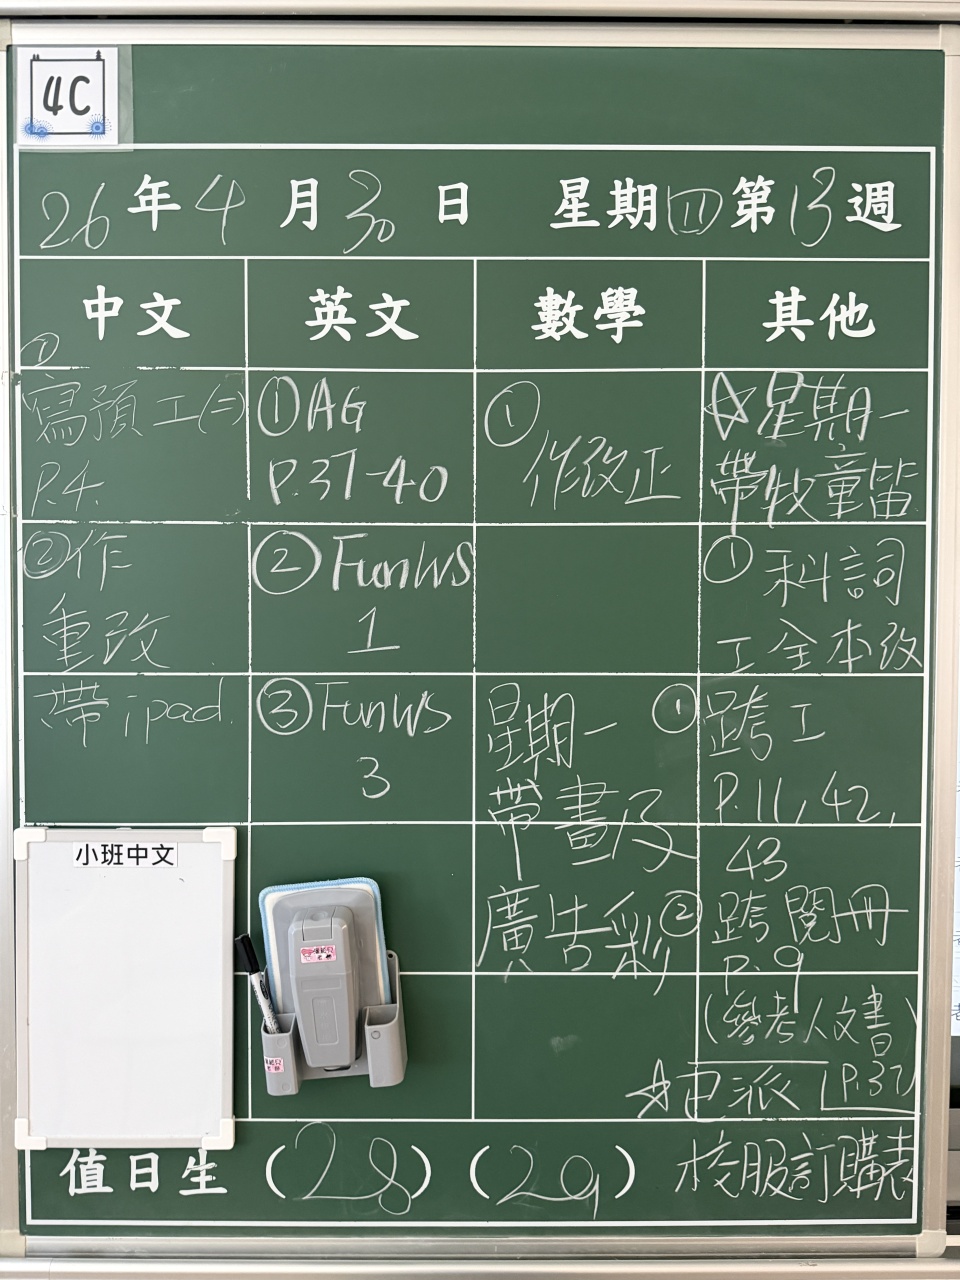 4C
26年4月30日 星期四第13週
中文 英文 數學 其他
①
寫預工(二)
P.4.
②作
重改
帶ipad.
①AG
P.37-40
②FunWS
1
③FunWS
3
①
作改正
☆星期一
帶牧童笛
①科詞
工全本改
星期一
帶畫及
廣告彩
①跨工
P.11,42,
43
②跨閱冊
P.9
(參考人文書
P.37)
☆已派
校服訂購表
小班中文
值日生(28)(29)